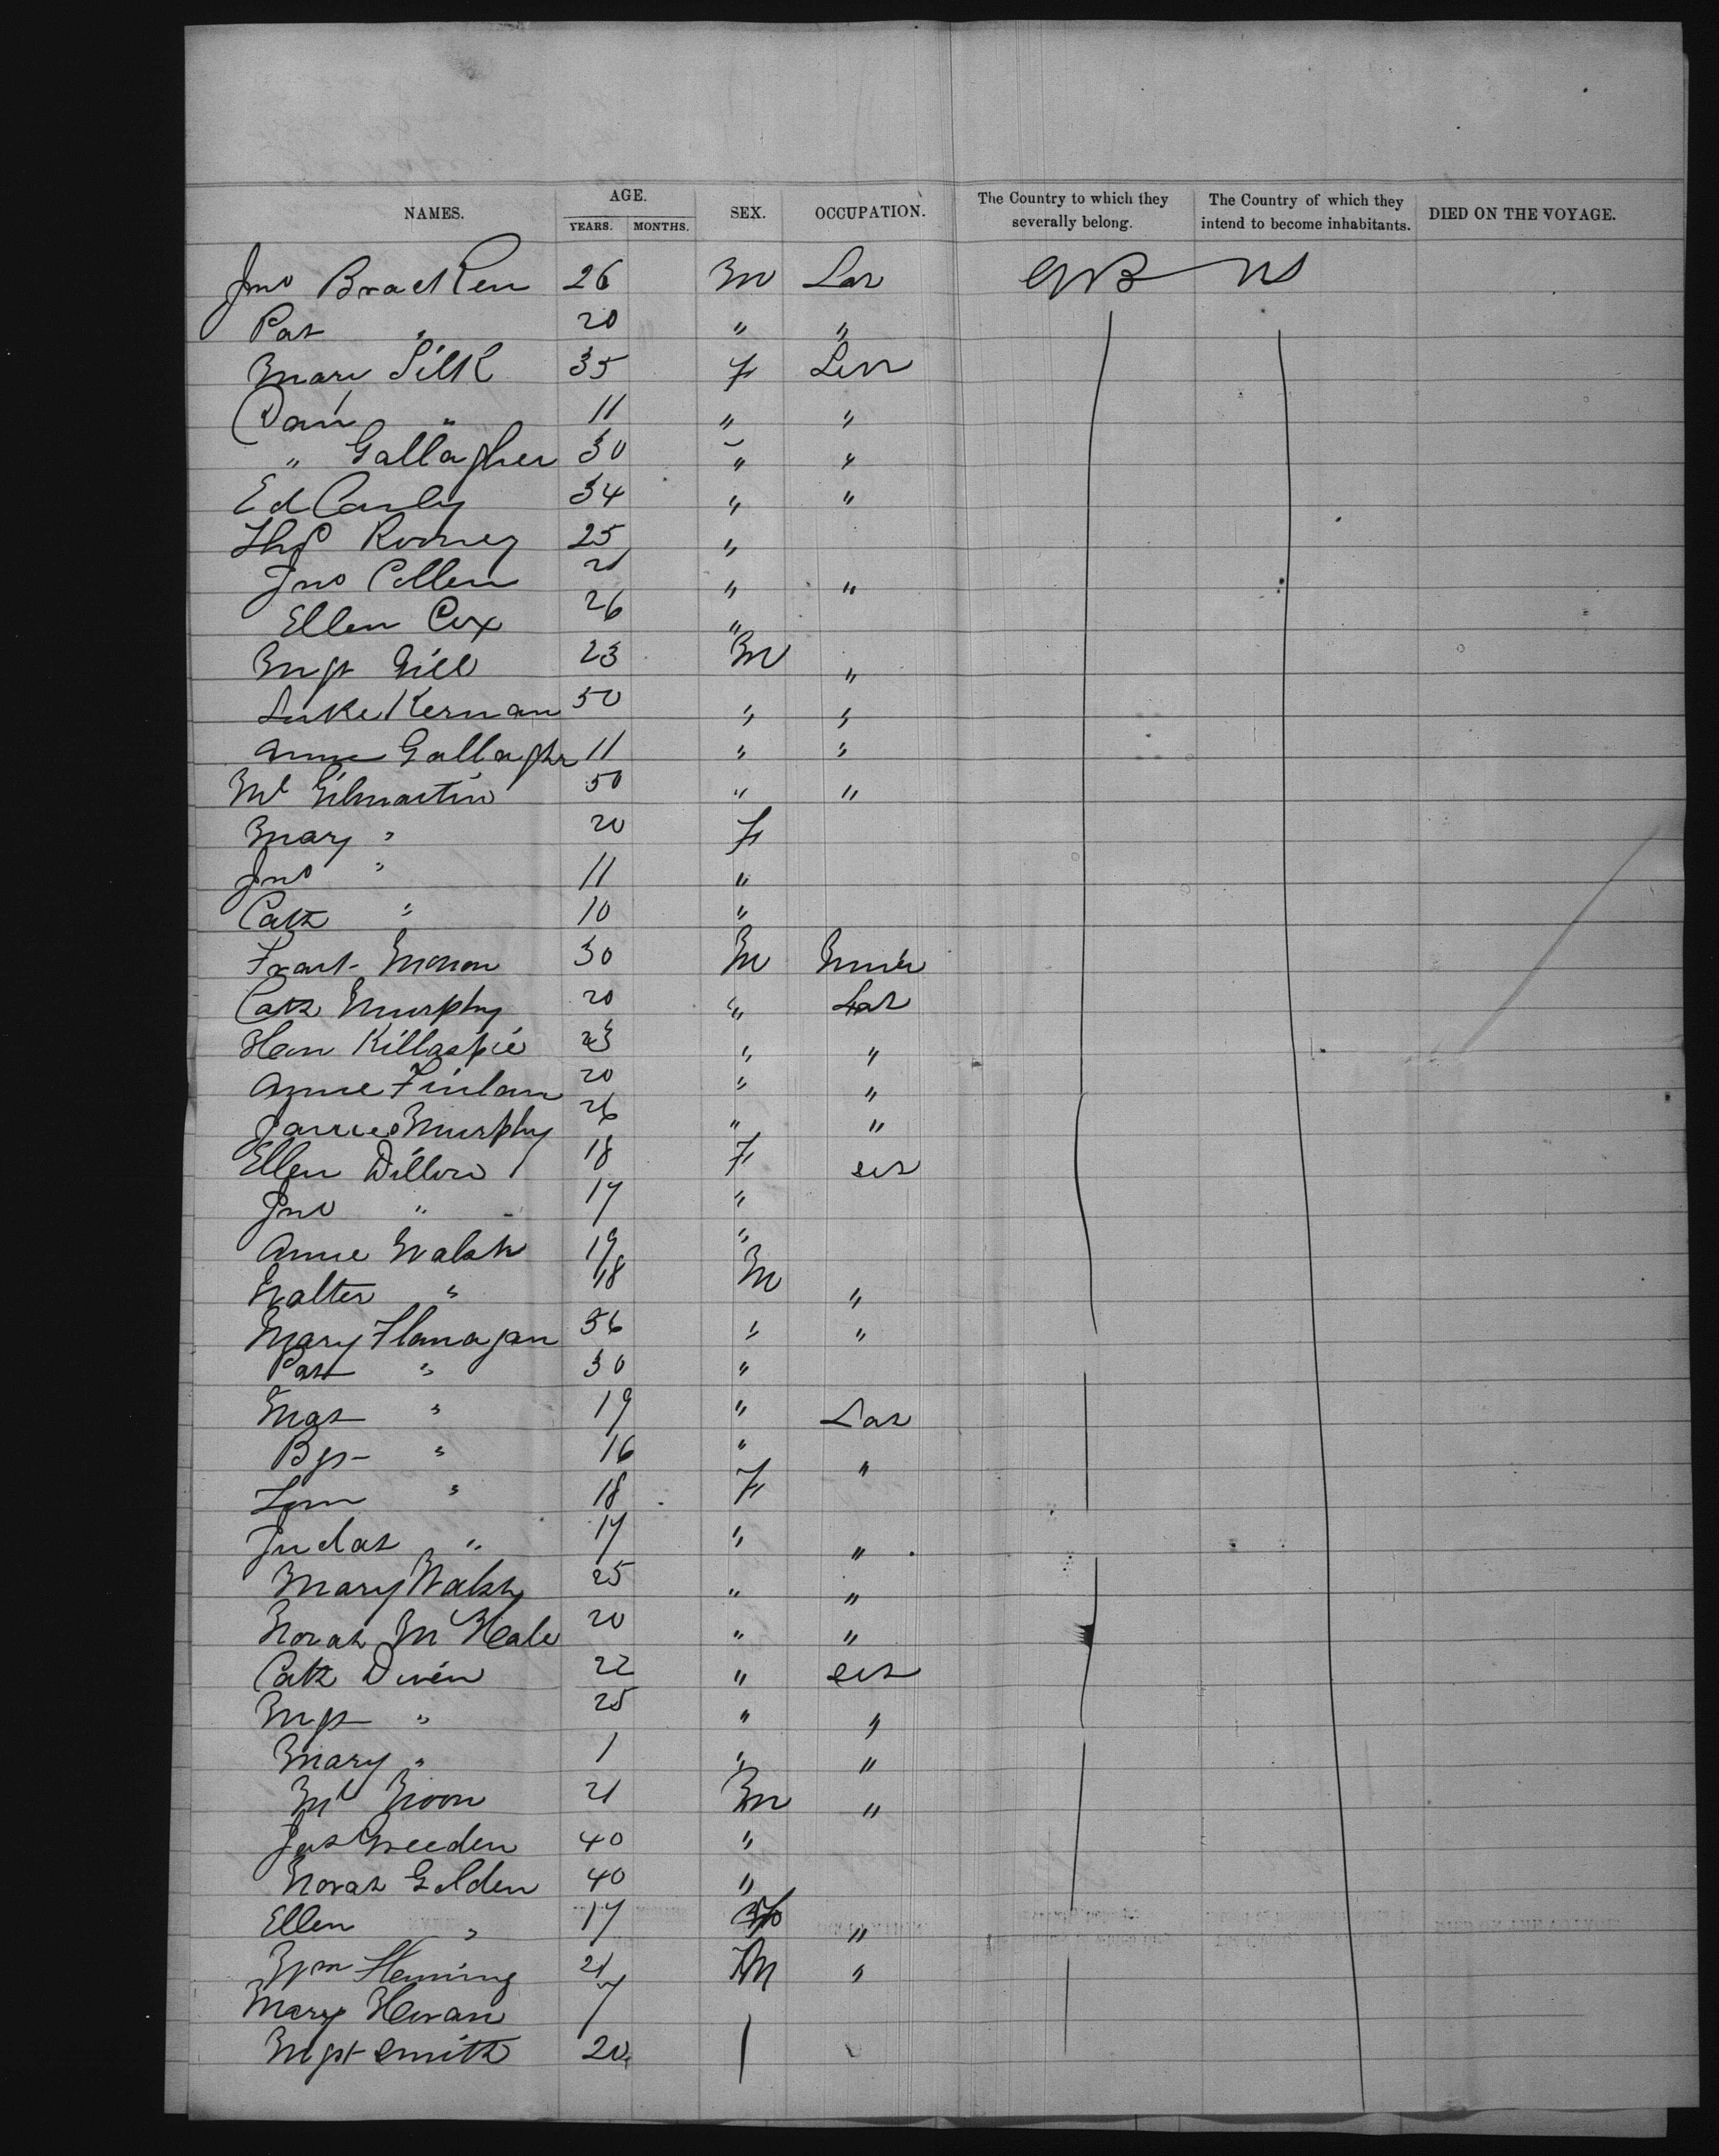 NAMES. AGE. SEX. OCCUPATION. The Country to which they severally belong. The Country of which they intend to become inhabitants. DIED ON THE VOYAGE.
YEARS. MONTHS.
Jno Bracken 26 M Lar GB US
Pat " 20 " "
Mary Silk 35 F
Dan " 11 " "
" Gallagher 30 " "
Ed 34 " "
Ths Rooney 25 "
Jno Cullen 21 " "
Ellen Cox 26 "
Mgt Gill 23 M "
Luke Kernan 50 " "
Anne Gallaghr 11 " "
Ml Gilmartin 50 " "
Mary " 20 F
Jno " 11 "
Cath " 10 "
30 M
Cath Murphy 20 " Lar
Killaspie 23 " "
Anne Finlan 20 " "
James Murphy 26 " "
Ellen Dillon 18 F ser
Jno " 17 "
Anne Walsh 19 "
Walter " 18 M "
Mary Flanagan 36 " "
Pat " 30 "
" 19 " Lar
" 16 " "
" 18 F
" 17 " "
Mary Walsh 25 " "
Norah McHale 20 " "
Cath 22 " ser
Mgt " 25 " "
Mary " 1 " "
Ml 21 M "
Jas 40 "
Norah Golden 40 "
Ellen " 17 "
Fleming 21 M "
Mary 7
Mgt Smith 20